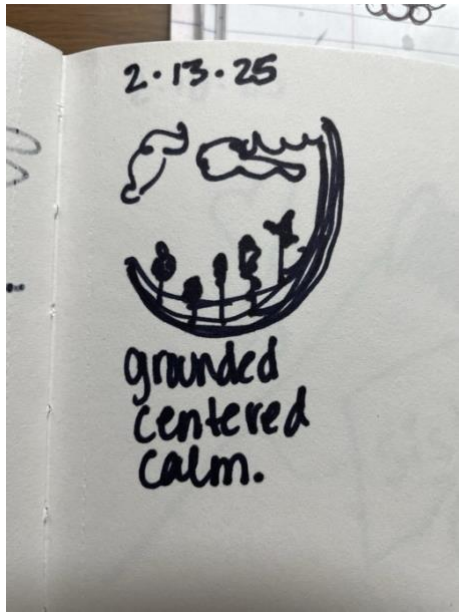 2·13·25
grounded
centered
calm.